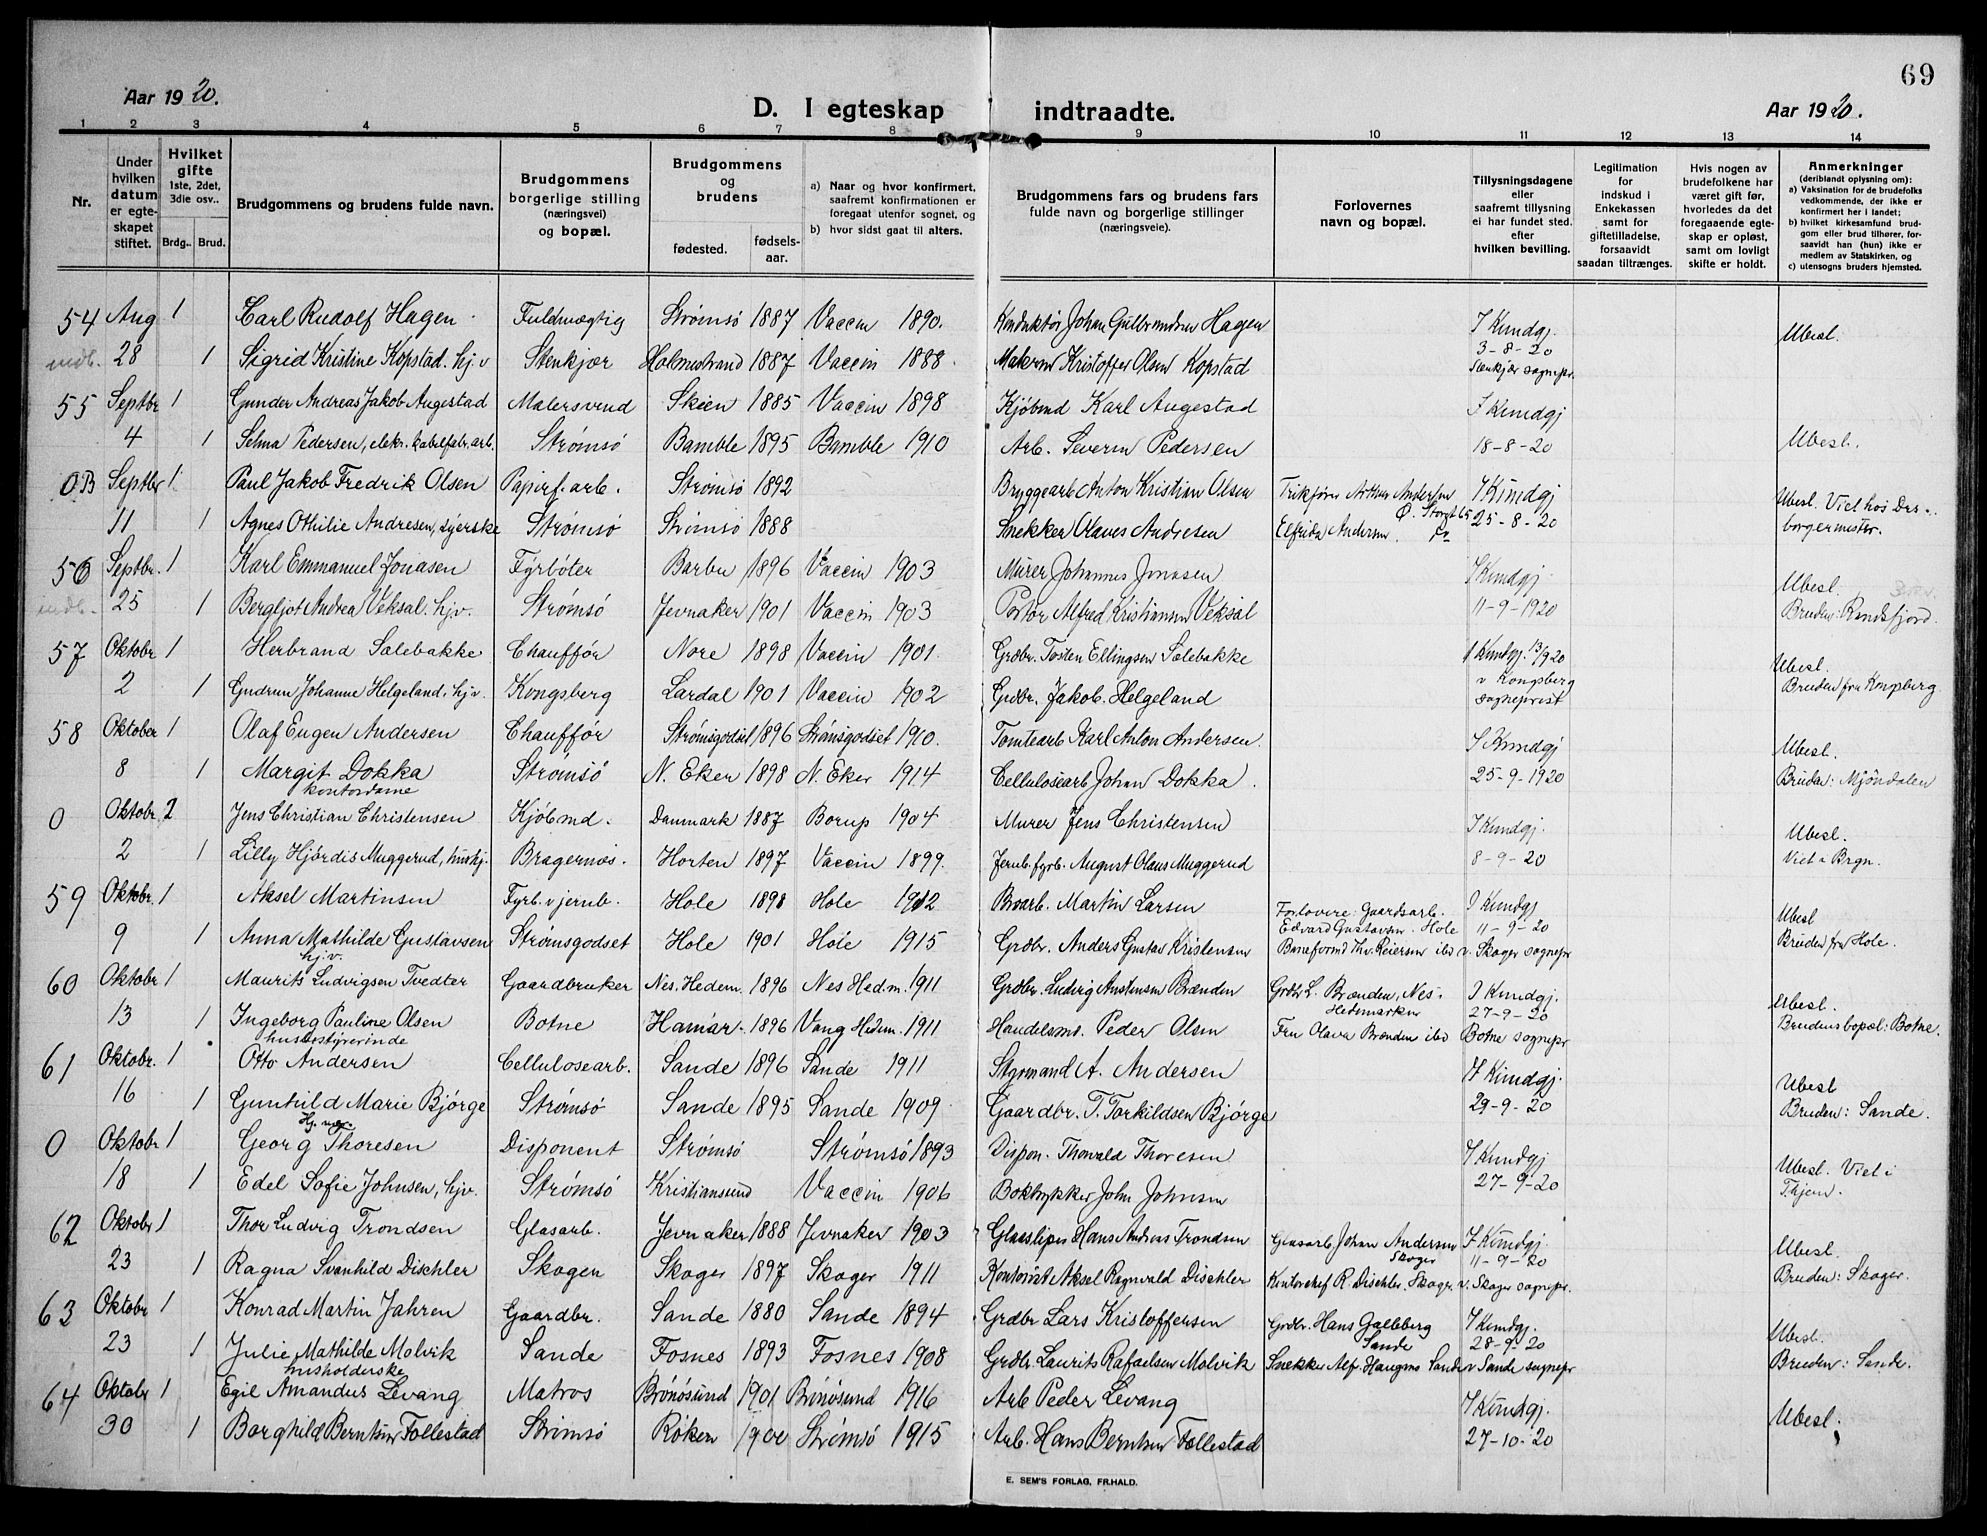 69
Aar 1920.
D. I egteskap indtraadte.
Aar 1920.
1 2 3 4 5 6 7 8 9 10 11 12 13 14
Nr.
Under hvilken datum er egteskapet stiftet.
Hvilket gifte 1ste, 2det, 3die osv..
Brdg.. Brud.
Brudgommens og brudens fulde navn.
Brudgommens borgerlige stilling (næringsvei) og bopæl.
Brudgommens og brudens
fødested. fødselsaar.
a) Naar og hvor konfirmert, saafremt konfirmationen er foregaat utenfor sognet, og
b) hvor sidst gaat til alters.
Brudgommens fars og brudens fars fulde navn og borgerlige stillinger (næringsveie).
Forlovernes navn og bopæl.
Tillysningsdagene eller saafremt tillysning ei har fundet sted. efter hvilken bevilling.
Legitimation for indskud i Enkekassen samt for giftetilladelse, forsaavidt saadan tiltrænges.
Hvis nogen av brudefolkene har været gift før, hvorledes da det foregaaende egteskap er opløst, samt om lovligt skifte er holdt.
Anmerkninger (deriblandt oplysning om): a) Vaksination for de brudefolks vedkommende, der ikke er konfirmert her i landet; b) hvilket kirkesamfund brudgom eller brud tilhører, forsaavidt han (hun) ikke er medlem av Statskirken, og c) utensogns bruders hjemsted.
54 Aug 1 Carl Rudolf Hagen Fuldmægtig Strømsø 1887 Vaccin 1890. Konduktør Johan Gulbrandsen Hagen I Kundgj. Ubesl.
indb. 28 1 Sigrid Kristine Kopstad. hj.v Stenkjær Holmestrand 1887 Vaccin 1888. Maskinm Kristoffer Olsen Kopstad 3-8-20
Stenkjær sognepr.
55 Septbr 1 Gunder Andreas Jakob Augestad Malersvend Skien 1885 Vaccin 1898 Kjøbmd Karl Augestad I Kundgj
4 1 Selma Pedersen, elektr. kabelfabr. arb. Strømsø Bamble 1895 Bamble 1910 Arb. Severin Pedersen 18-8-20 Ubesl.
OB Septbr 1 Paul Jakob Fredrik Olsen Papirf. arb. Strømsø 1892 Bryggearb Anton Kristian Olsen Arthur Andersen Ø. Storgt 65 I Kundgj Ubesl. Viet hos Drs.
11 1 Agnes Othilie Andresen, syerske Strømsø Strømsø 1888 Snekker Olaves Andresen Elfrida Andersen 25-8-20 borgermester.
56 Septbr. 1 Karl Emmanuel Jonasen Fyrbøter Barbu 1896 Vaccin 1903 Murer Johannes Jonasen I Kundgj. Ubesl.
indb. 25 1 Bergljot Andrea Veksal. hjv. Strømsø Jevnaker 1901 Vaccin 1903 Portør Alfred Kristiansen Veksal 11-9-1920 Bruden: Randsfjord.
57 Oktobr 1 Herbrand Sælebakke Chauffør Nore 1898 Vaccin 1901. Grdbr. Tosten Ellingsen Sælebakke I Kundgj. 13/9 20 Ubesl.
2 1 Gudrun Johanne Helgeland, hjv. Kongsberg Lardal 1901 Vaccin 1902 Grdbr. Jakob Helgeland v Kongsberg Bruden fra Kongsberg.
sogneprest
58 Oktober 1 Olaf Eugen Andersen Chauffør Strømsgodset 1896 Strømsgodset 1910. Tomtearb Karl Anton Andersen. I Kundgj Ubesl.
8 1 Margit Dokka Strømsø N. Eker 1898 N. Eker 1914 Cellulosearb Johan Dokka. 25-9-1920 Bruden: Mjøndalen
kontordame
0 Oktobr. 2 Jens Christian Christensen Kjøbmd. Danmark 1887 Borup 1904 Murer Jens Christensen I Kundgj. Ubesl.
2 1 Lilly Hjørdis Muggerud, hushj. Bragernæs. Horten 1897 Vaccin 1899. Jernb. fyrb. August Olaus Muggerud 8-9-20 Viet i Brgn.
59 Oktobr. 1 Aksel Martinsen Fyrb. v jernb. Hole 1898 Hole 1912 Broarb. Martin Larsen Forlovere: Gaardsarb. I Kundgj Ubesl
9 1 Anna Mathilde Gustavsen Strømsgodset Hole 1901 Hole 1915 Grdbr. Anders Gustav Kristensen Edvard Gustavsen. Hole 11-9-20 Bruden fra Hole.
hj.v. Baneformd Thv. Reiersen ibd v. Skoger sognepr
60 Oktobr 1 Maurits Ludvigsen Tvedter Gaardbruker Nes. Hedem. 1896 Nes Hed.m. 1911 Grdbr. Ludvig Austensen Brænden Grdbr L. Brænden, Nes. Hedemarken I Kundgj. Ubesl.
13 1 Ingeborg Pauline Olsen Botne Hamar. 1896 Vang Hedem. 1911 Handelsm. Peder Olsen Fru Olava Brænden ibd 27-9-20 Brudens bopæl: Botne.
husbestyrerinde Botne sognepr
61 Oktobr. 1 Otto Andersen Cellulosearb. Sande 1896 Sande 1911 Styrmand A. Andersen I Kundgj. Ubesl
16 1 Gunhild Marie Bjørge Strømsø Sande 1895 Sande 1909 Gaardbr. T. Torkildsen Bjørge 29-9-20 Bruden: Sande.
0 Oktobr. 1 Georg Thoresen Disponent Strømsø Strømsø 1893 Dispon. Thorvald Thoresen I Kundgj Ubesl. Viet i
18 1 Edel Sofie Johnsen, hjv. Strømsø Kristiansund Vaccin 1906 Boktrykker John Johnsen 27-9-20 Thjem.
62 Oktobr 1 Thor Ludvig Trondsen Glasarb. Jevnaker 1888 Jevnaker 1903 Glassliper Hans Andreas Trondsen Glasarb. Johan Andersen Skoger I Kundgj. Ubesl.
23 1 Ragna Svanhild Dischler Skogen Skoger 1897 Skoger 1911 Kontorist Aksel Ragnvald Dischler Kontorchef R. Dischler. Skoger 11-9-20 Bruden: Skoger.
v. Skoger sognepr.
63 Oktobr 1 Konrad Martin Jahren Gaardbr. Sande 1880 Sande 1894 Grdbr Lars Kristoffersen Grdbr. Hans Galleberg Sande I Kundgj. Ubesl.
23 1 Julie Mathilde Molvik Sande Fosnes 1893 Fosnes 1908 Grdbr. Laurits Rafaelsen Molvik Snekker Alf. Haugmo Sande 28-9-20 Bruden: Sande.
husholderske v Sande sognepr
64 Oktobr 1 Egil Amandus Levang Matros Brønøsund 1901 Brønøsund 1916 Arb Peder Levang I Kundgj. Ubesl.
30 1 Borghild Berntsen Follestad Strømsø Røken 1900 Strømsø 1915 Arb. Hans Berntsen Follestad 27-10-20
E. SEM'S FORLAG, FR.HALD.